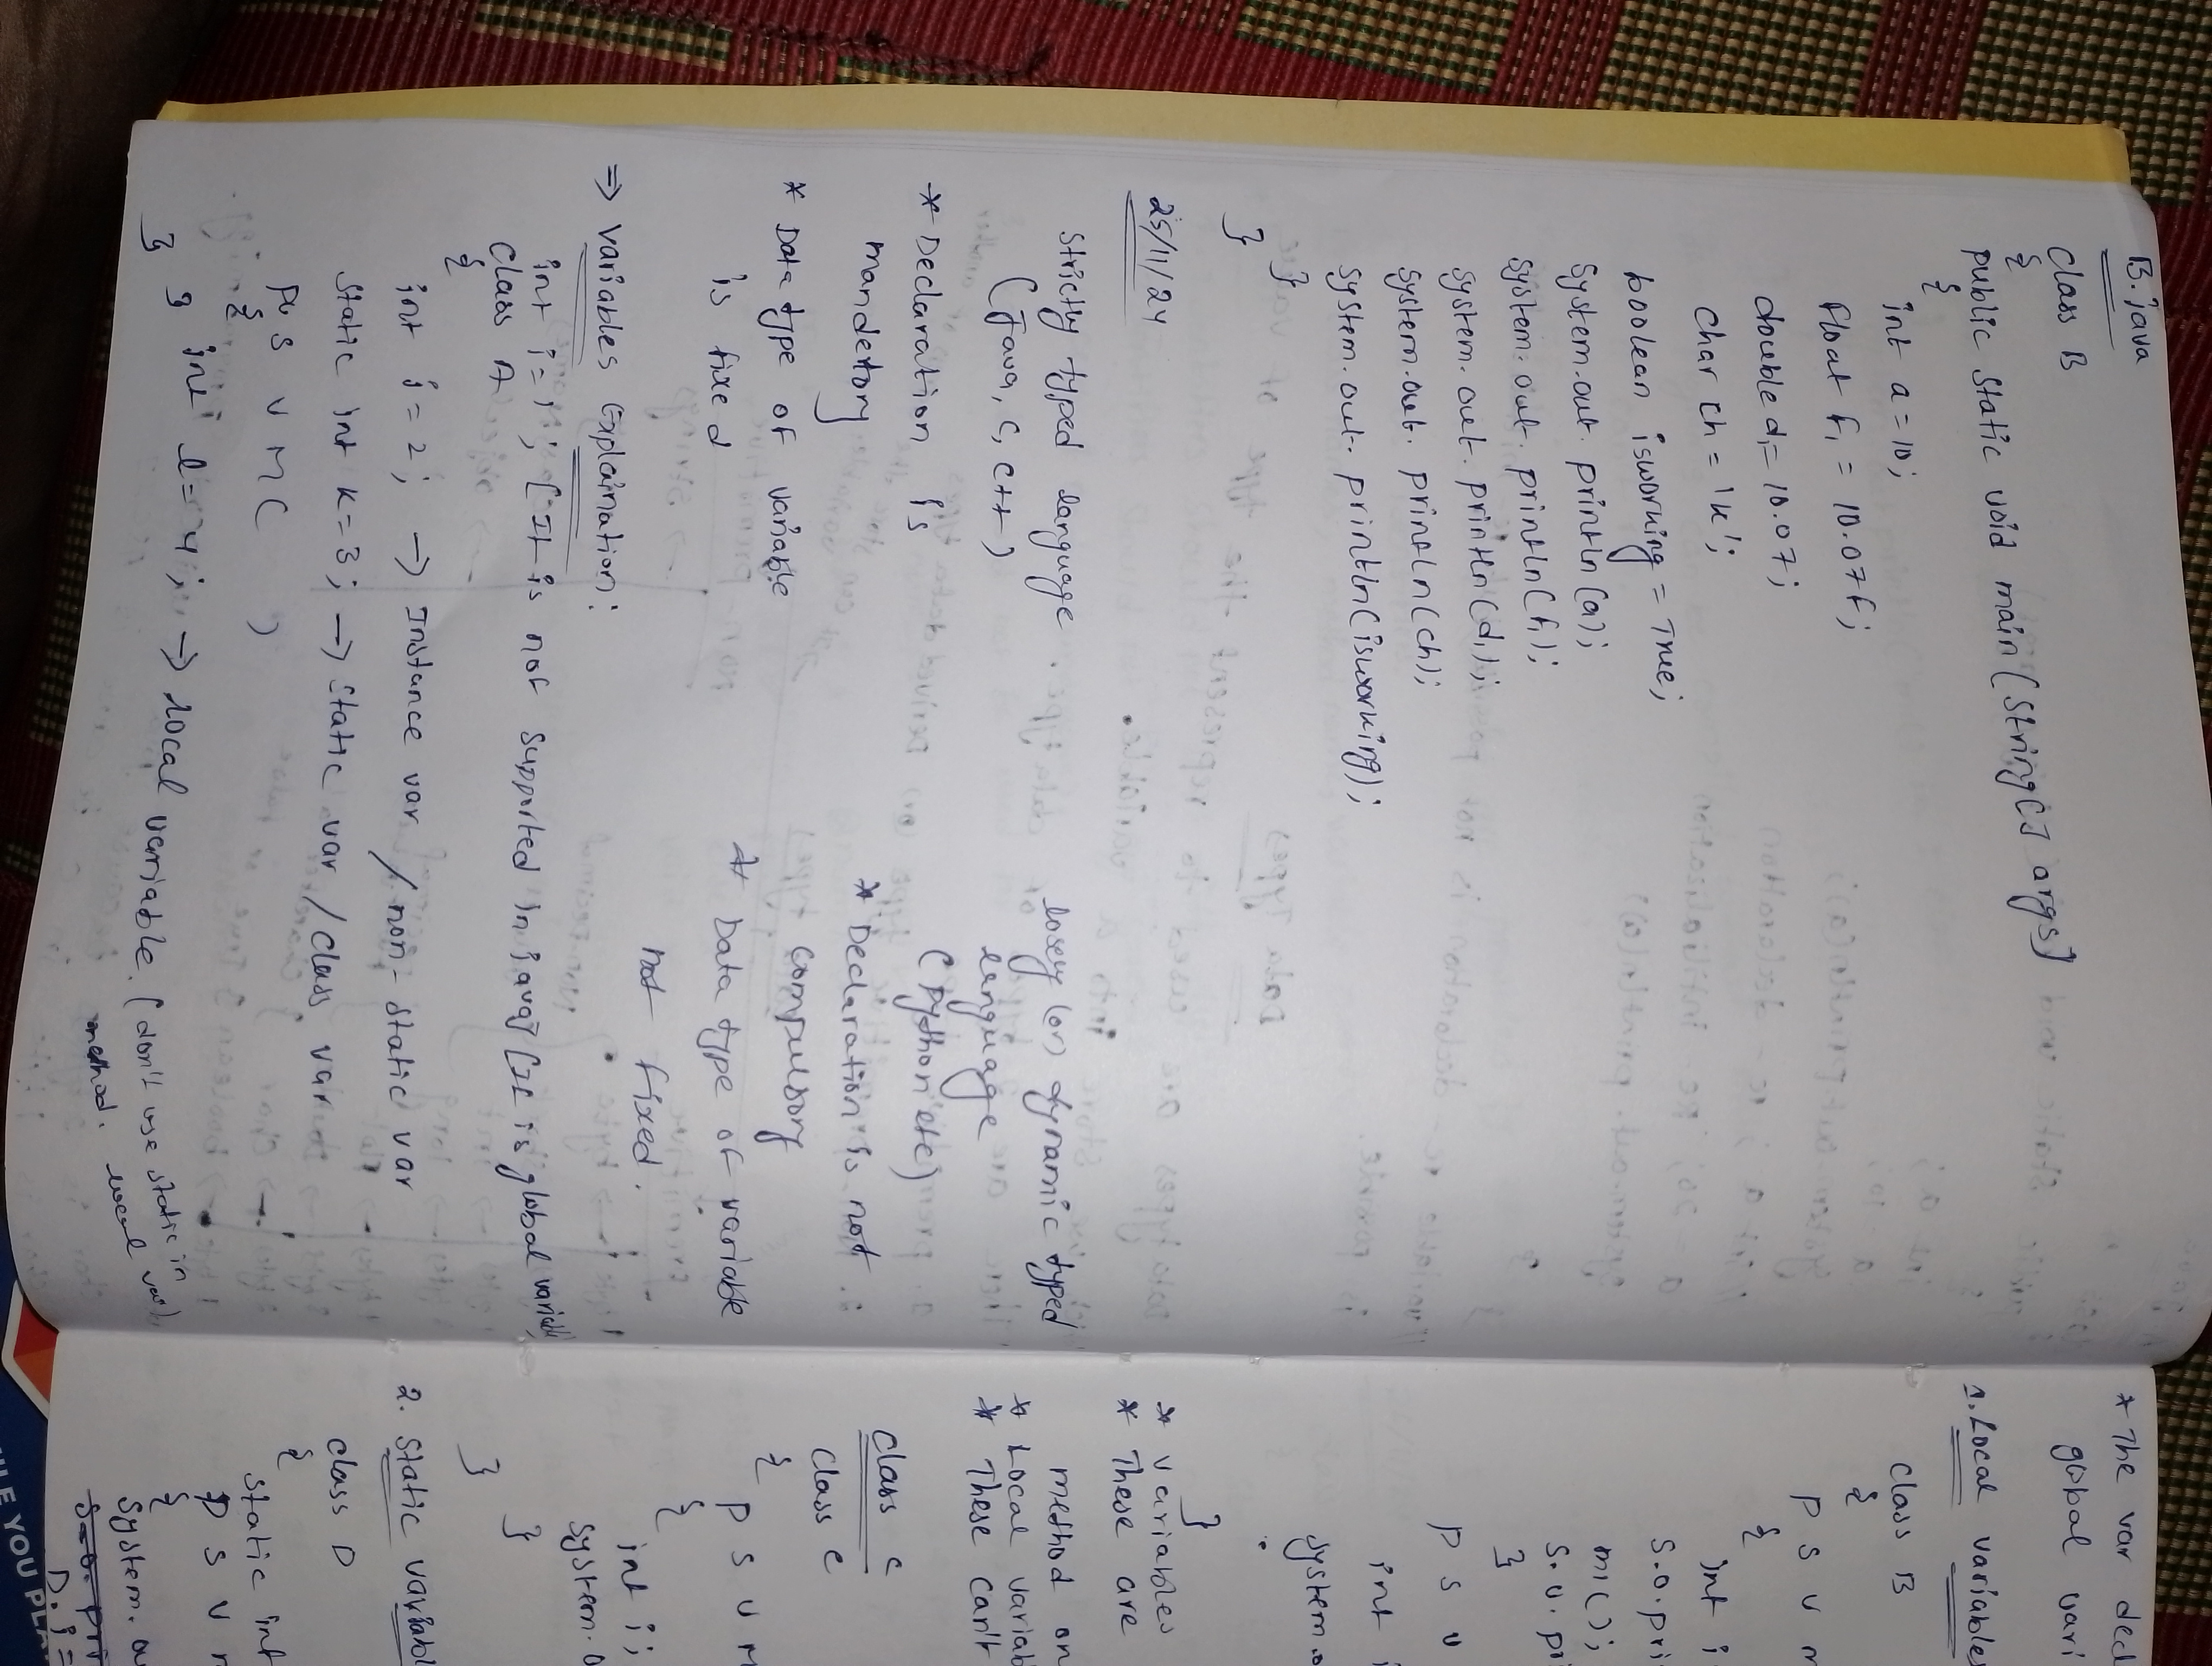 B.java
class B
{
public static void main(String[] args)
{
int a = 10;
float f1 = 10.07f;
double d1 = 10.07;
char ch = 'k';
boolean isworking = True;
System.out.println(a);
System.out.println(f1);
System.out.println(d1);
System.out.println(ch);
System.out.println(isworking);
}
}
25/11/24
strictly typed language
(Java, C, C++)
* Declaration is
mandetory
* Data type of variable
is fixed
losely (or) dynamic typed
language
(python etc)
* Declaration is not
compulsory
* Data type of variable
not fixed.
=> variables Explaination:
int i = 1; [It is not supported in java] [It is global variable]
class A
{
int j = 2; -> Instance var / non-static var
static int k = 3; -> static var / class var
P S V M ( )
{
int l = 4; -> local variable. (don't use static in
local var)
method.
}
}
* The var decl
global vari
1. Local variables
class B
{
P S V M
{
int i
S.O.pri
m1();
S.O.pri
}
P S V
int i
System.o
}
* variables
* These are
method on
* Local variab
* These can't
class C
class C
{
P S V M
{
int i;
System.o
}
}
2. static variabl
class D
{
static int
P S V M
{
System.ou
D.i =